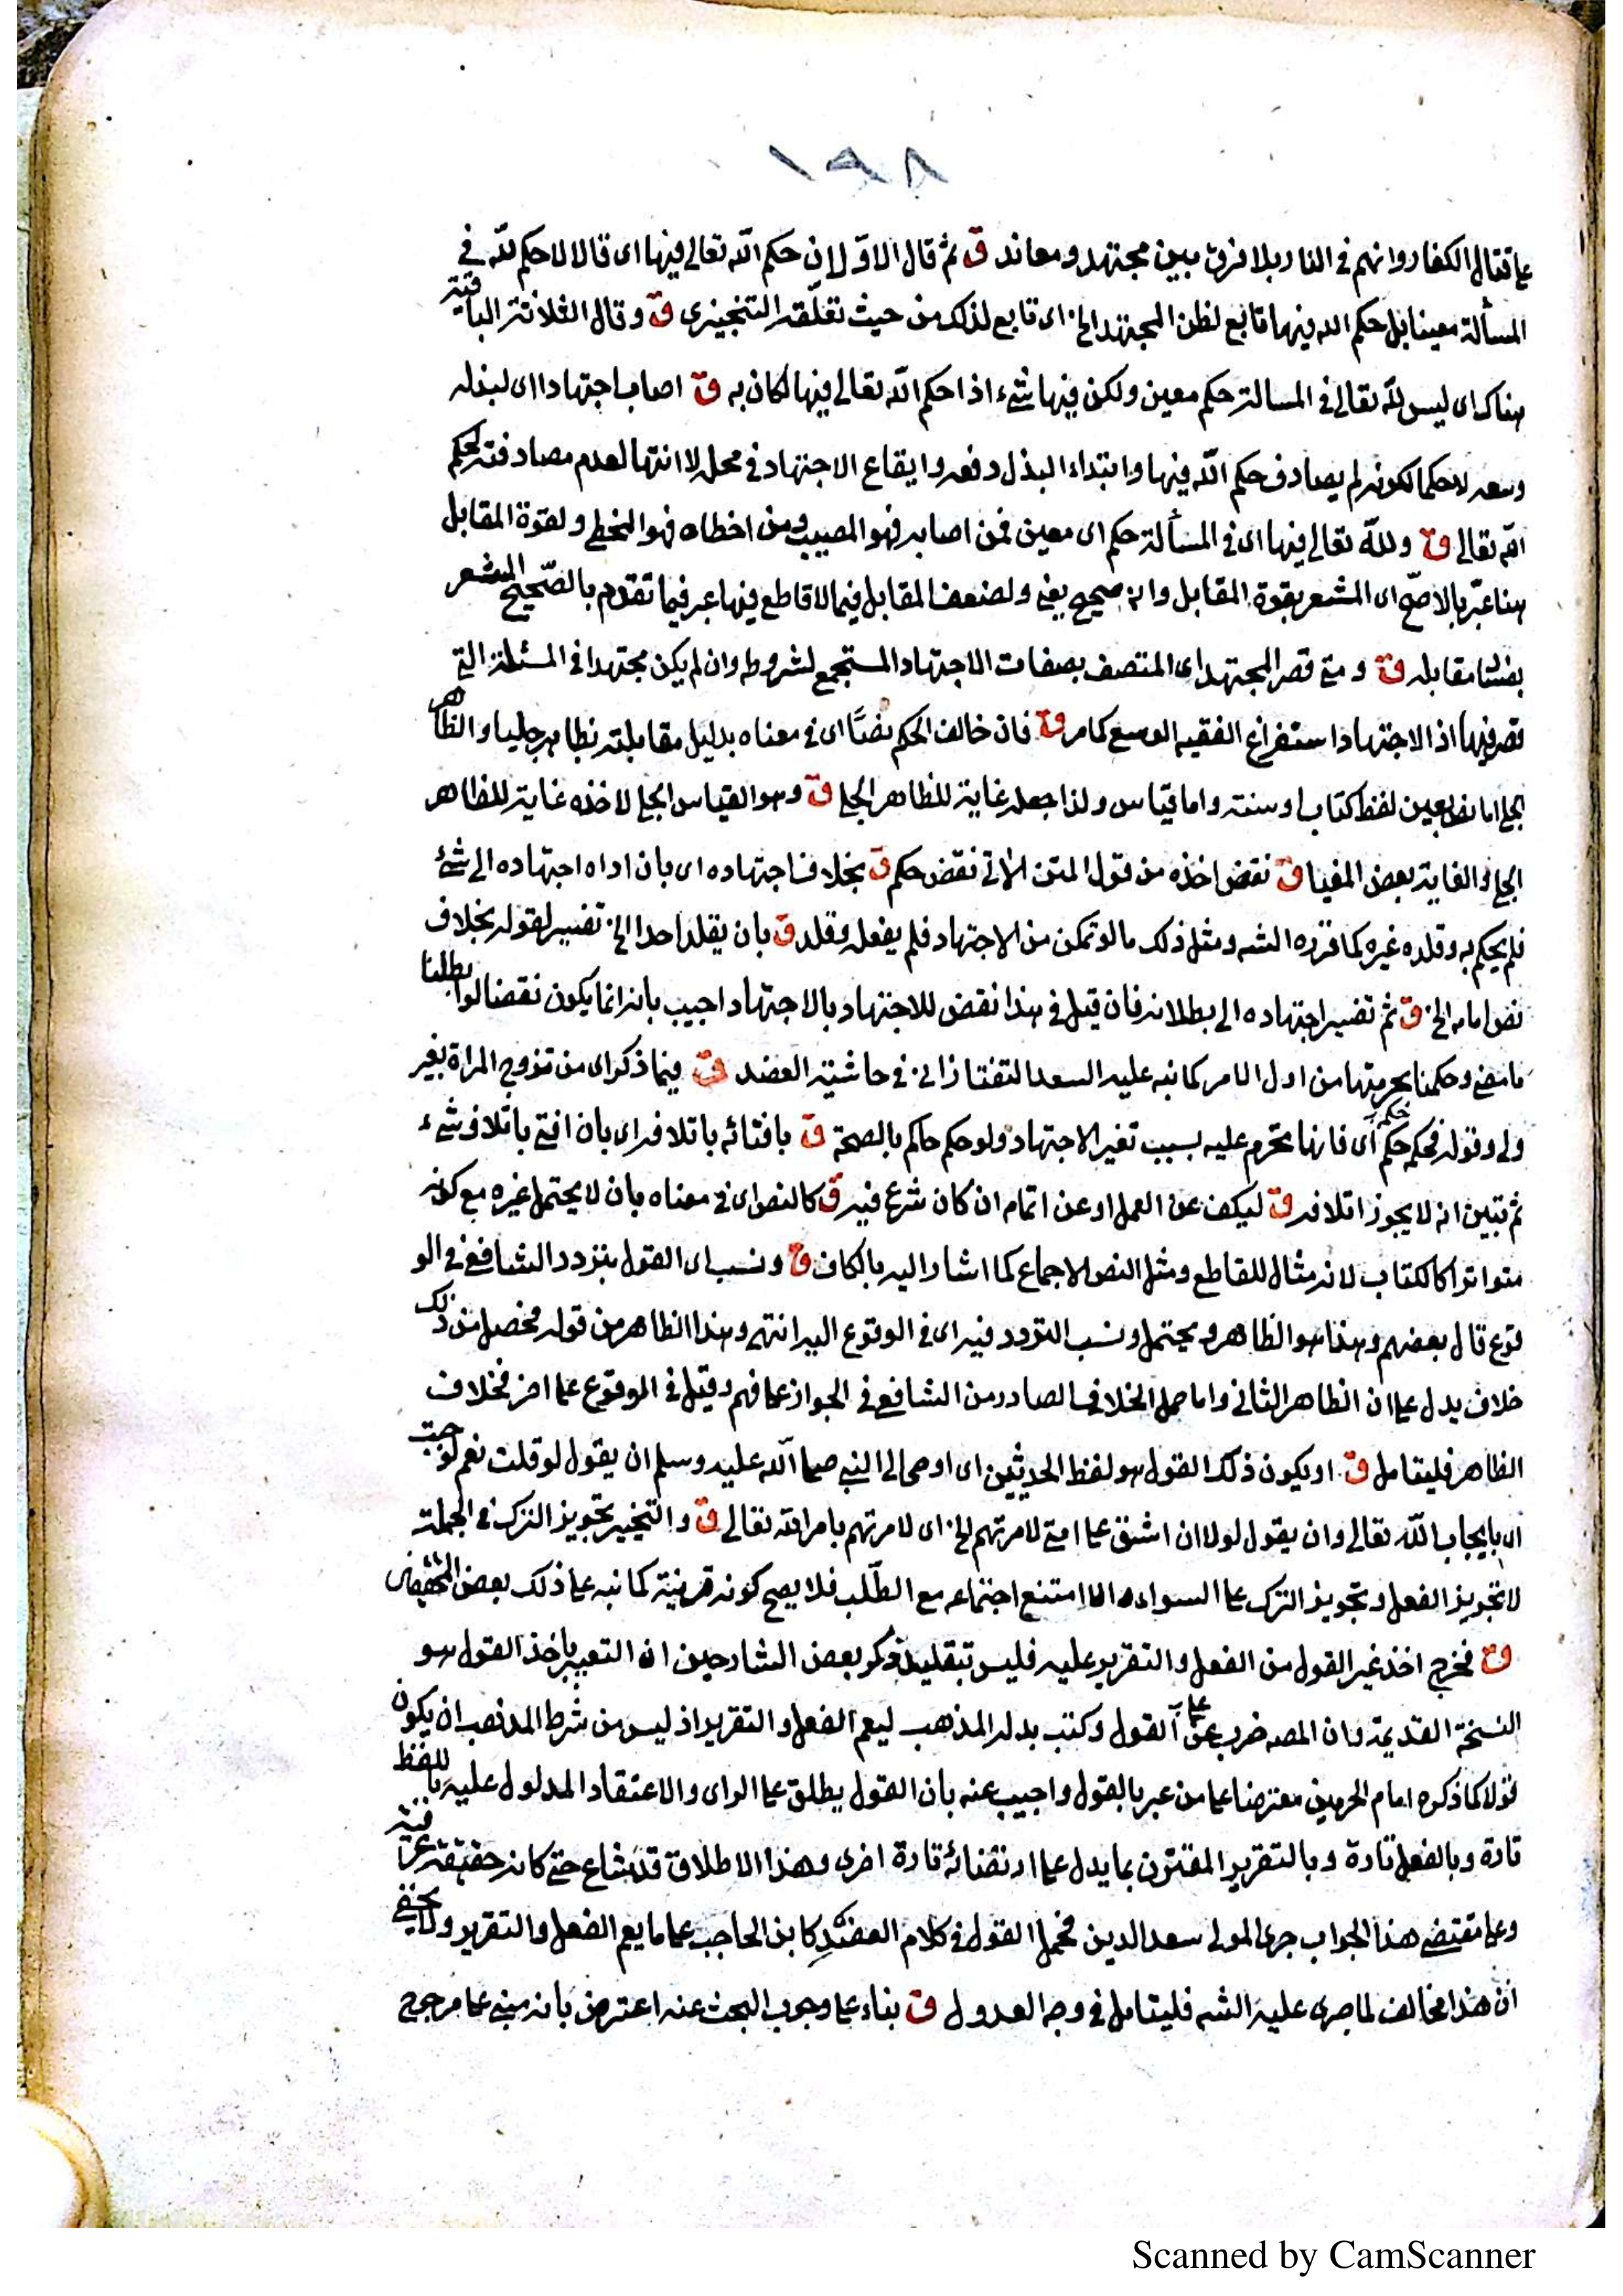 ١٩٨
على قتال الكفار وانهم فى النار بلا فرق بين مجتهد ومعاند ق ثم قال الاولان حكم الله تعالى فيها اى قالا لا حكم لله فى
المسألة معينا بل حكم الله فيها تابع لظن المجتهد الخ اى تابع لذلك من حيث تعلقه التنجيزى ق وقال الثلاثة الباقية
هناك اى ليس لله تعالى فى المسالة حكم معين ولكن فيها شىء اذا حكم الله تعالى فيها لكان به ق اصاب اجتهادا اى لبذله
وسعه لا حكما لكونه لم يصادف حكم الله فيها وابتداء البذل وسعه وايقاع الاجتهاد فى محله لا انتها لعدم مصادفته لحكم
الله تعالى ق ولله تعالى فيها اى فى المسألة حكم اى معين فمن اصابه فهو المصيب ومن اخطاه فهو المخطى ولقوة المقابل
هنا عبر بالاصح اى المشعر بقوة المقابل وانه صحيح يعنى ولضعف المقابل فيما لا قاطع فيها عبر فيما تقدم بالصحيح المشعر
بفساد مقابله ق ومتى قصر المجتهد اى المتصف بصفات الاجتهاد المستجمع لشروطه وان لم يكن مجتهدا فى المسئلة التى
قصر فيها اذ الاجتهاد استفراغ الفقيه الوسع كما مر ق فان خالف الحكم نصا اى فى معناه بدليل مقابلته بظاهر جليا والظاهر
الجلى اما نص بعين لفظ كتاب او سنة واما قياس ولذا جعله غاية للظاهر الجلى ق وهو القياس الجلى لاخذه غاية للظاهر
الجلى والغاية بعض المغيا ق نقض اخذه من قول المتن الاتى نقض حكم ق بخلاف اجتهاده اى بان اداه اجتهاده الى شئ
فلم يحكم به وقلده غيره كما قرره الشه ومثل ذلك ما لو تمكن من الاجتهاد فلم يفعل وقلد ق بان يقلد احدا الخ تفسير لقوله بخلاف
نص امامه الخ ق ثم تغير اجتهاده الى بطلانه فان قيل فى هذا نقض للاجتهاد بالاجتهاد اجيب بانه انما يكون نقضا لو ابطلنا
ما مضى وحكمنا بحرمتها من اول الامر كما نبه عليه السعد التفتازانى فى حاشية العضد ق فيما ذكر اى من تزوج المراة بغير
ولى وقوله فحكم حكم اى فانها تحرم عليه بسبب تغير الاجتهاد ولو حكم حاكم بالصحة ق بافتائه باتلافه اى بان افتى باتلاف شىء
ثم تبين انه لا يجوز اتلافه ق ليكف عن العمل او عن اتمام ان كان شرع فيه ق كالنص اى فى معناه بان لا يحتمل غيره مع كونه
متواترا كالكتاب لانه مثال للقاطع ومثل النص الاجماع كما اشار اليه بالكاف ق ونسب اى القول بتردد الشافعى فى الو
قوع قال بعضهم وهذا هو الظاهر ويحتمل ونسب التردد فيه اى فى الوقوع اليه انتهى وهذا الظاهر من قوله فحصل من ذلك
خلاف يدل على ان الظاهر الثانى واما حمل الخلاف الصادر من الشافعى فى الجواز على فهم وقيل فى الوقوع على اخر فخلاف
الظاهر فليتامل ق او يكون ذلك القول هو لفظ الحديثين اى اوحى الى النبى صلى الله عليه وسلم ان يقول لو قلت نعم لوجبت
اى بايجاب الله تعالى وان يقول لولا ان اشق على امتى لامرتهم الخ اى لامرتهم بامر الله تعالى ق والتخيير تجويز الترك فى الجملة
لا تجويز الفعل وتجويز الترك على السواء والا امتنع اجتماعه مع الطلب فلا يصح كونه قرينة كما نبه على ذلك بعض
ق فخرج اخذ غير القول من الفعل والتقرير عليه فليس بتقليد ذكر بعض الشارحين ان التعبير باخذ القول هو
النسخة القديمة وان المصه ضرب على القول وكتب بدله المذهب ليعم الفعل والتقرير اذ ليس من شرط المذهب ان يكون
قولا كما ذكره امام الحرمين معترضا على من عبر بالقول واجيب عنه بان القول يطلق على الراى والاعتقاد المدلول عليه باللفظ
تارة وبالفعل تارة وبالتقرير المقترن بما يدل على ارتضائه تارة اخرى وهذا الاطلاق قد شاع حتى كانه حقيقة عرفية
وعلى مقتضى هذا الجواب جرى المولى سعد الدين فحمل القول فى كلام العضد كابن الحاجب على ما يعم الفعل والتقرير ولا يخفى
ان هذا مخالف لما جرى عليه الشه فليتامل فى وجه العدول ق بناء على وجوب البحث عنه اعترض بانه مبنى على مرجوح
Scanned by CamScanner